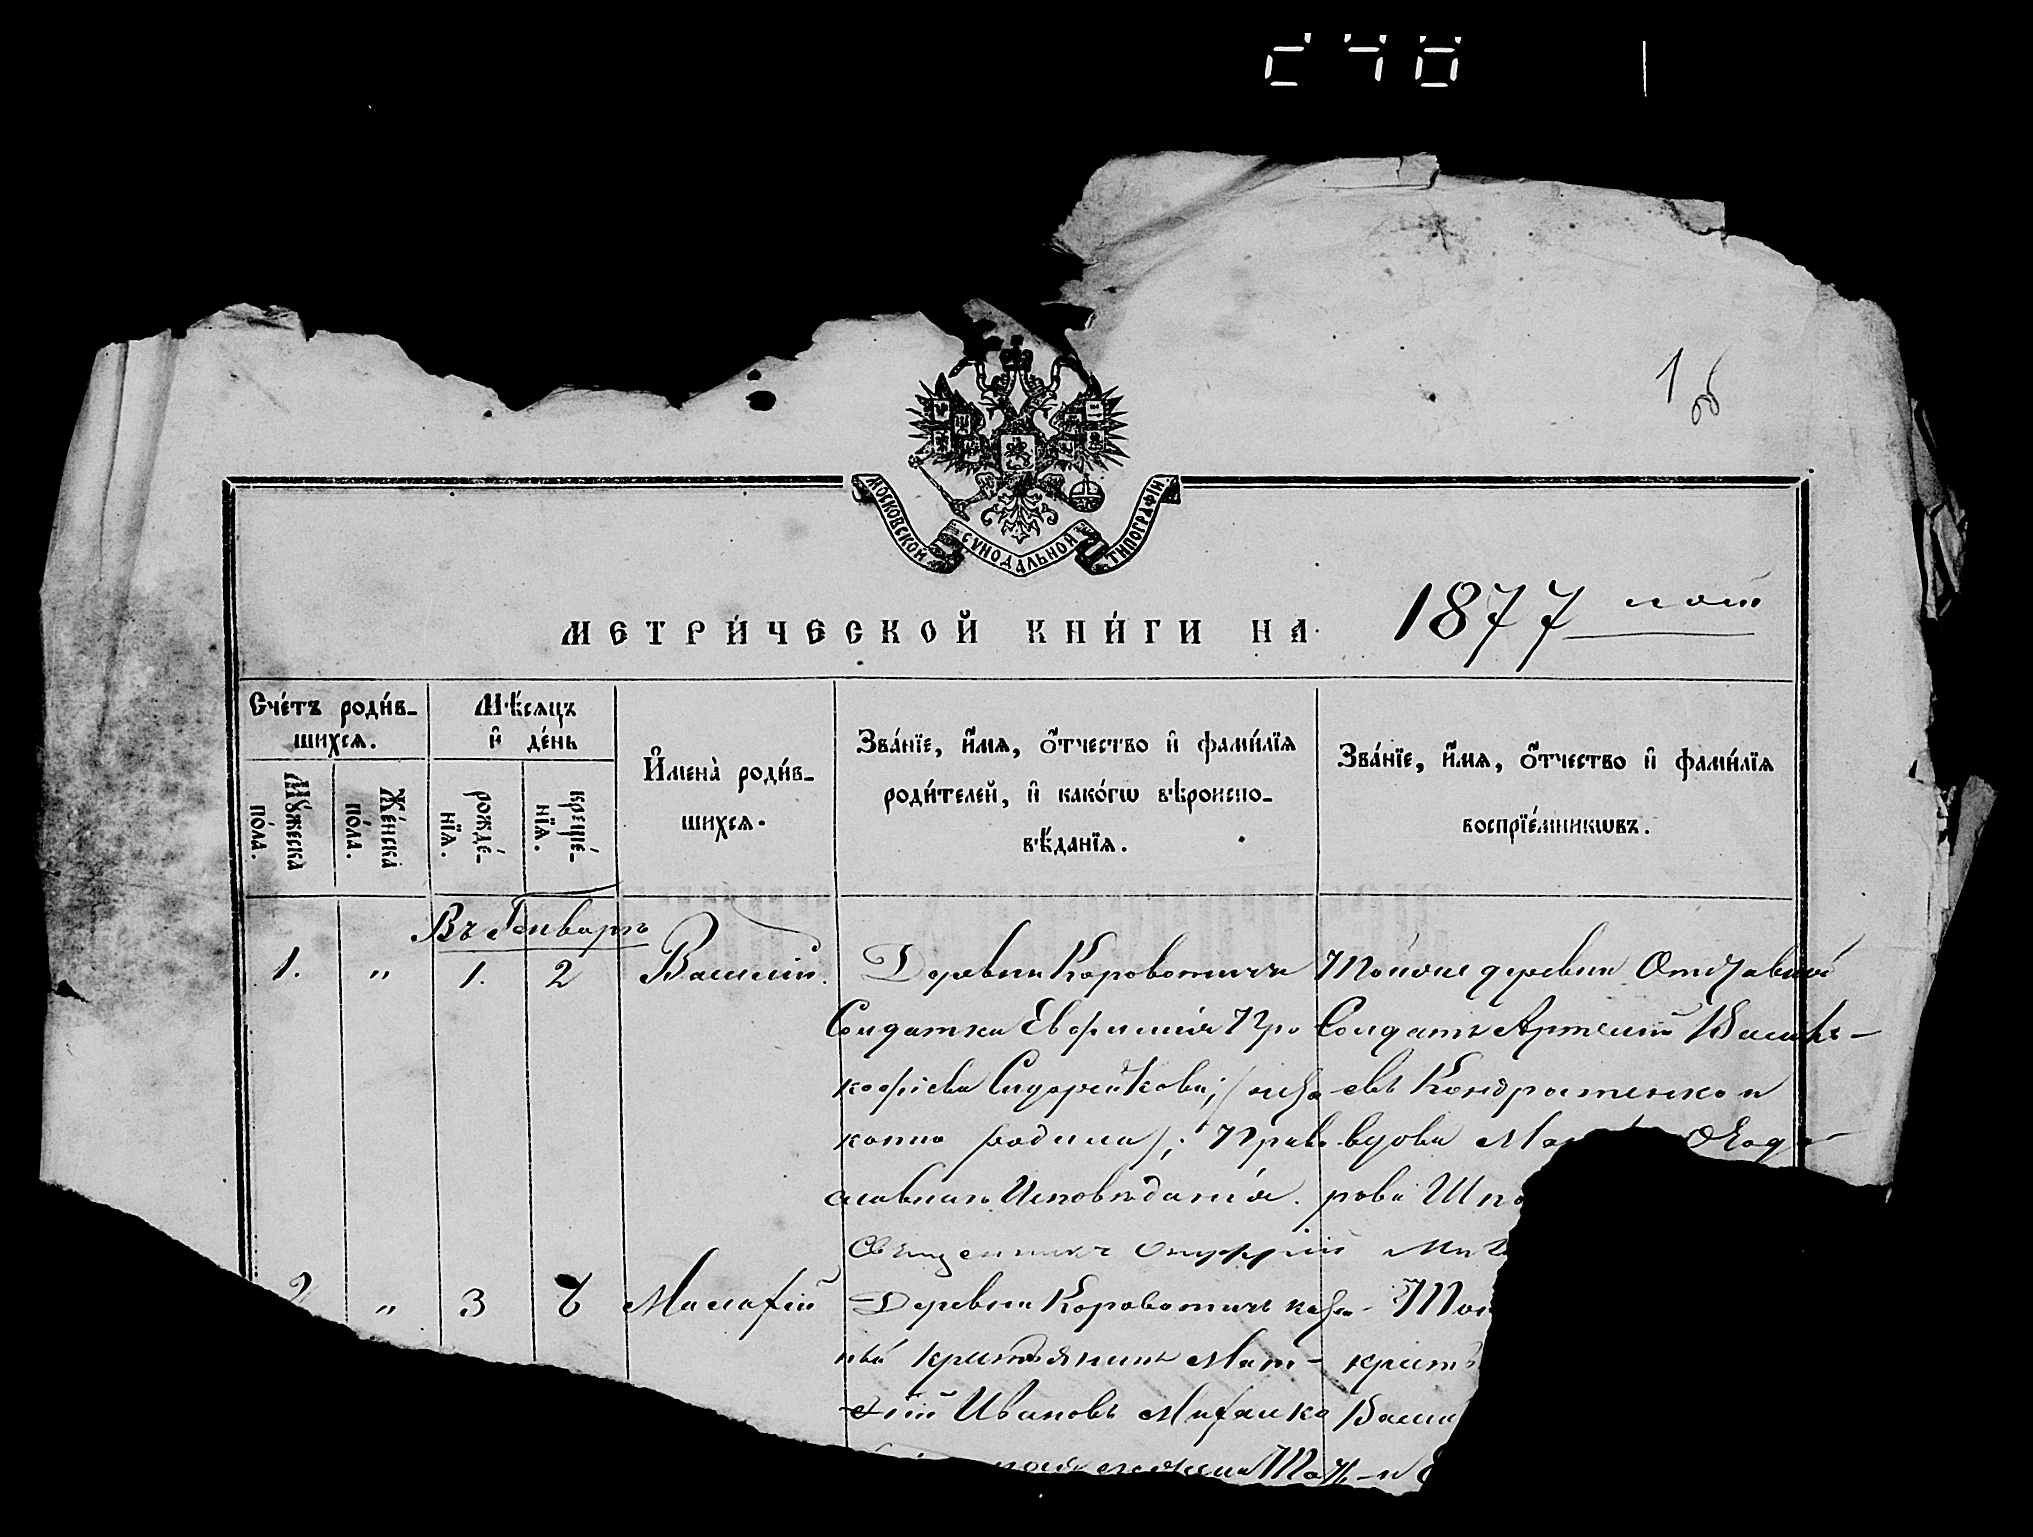 1 об
МОСКОВСКОЙ СУНОДАЛЬНОЙ ТИПОГРАФІИ
МЕТРИ́ЧЕСКОЙ КНИ́ГИ НА 1877 годъ
Сче́тъ роди́в-
шихсѧ.
Мꙋ́жеска
по́ла.
Же́нска
по́ла.
Мѣ́сѧцъ
и҆ де́нь
рожде́-
нїѧ.
креще́-
нїѧ.
И҆мена̀ роди́в-
шихсѧ.
Зва́нїе, и҆́мѧ, ѻ҆́тчество и҆ фами́лїѧ
роди́телей, и҆ како́гѡ вѣроиспо-
вѣ́данїѧ.
Зва́нїе, и҆́мѧ, ѻ҆́тчество и҆ фами́лїѧ
воспрїе́мникѡвъ.
Въ Генварѣ
1. " 1. 2 Василій.
Деревни Короватичъ
Солдатка Евфимія Про
кофіева Сидорейкова; (неза
конно родила); Право
славнаго Исповѣданія.
Тойже деревни Отставной
Солдатъ Артемій Василь-
евъ Кондратенко и
вдова
рова
Священникъ
2 " 3 6 Малафій
Деревни Короватичъ казен-
ный крестьянинъ Мат-
фій Ивановъ Михалко